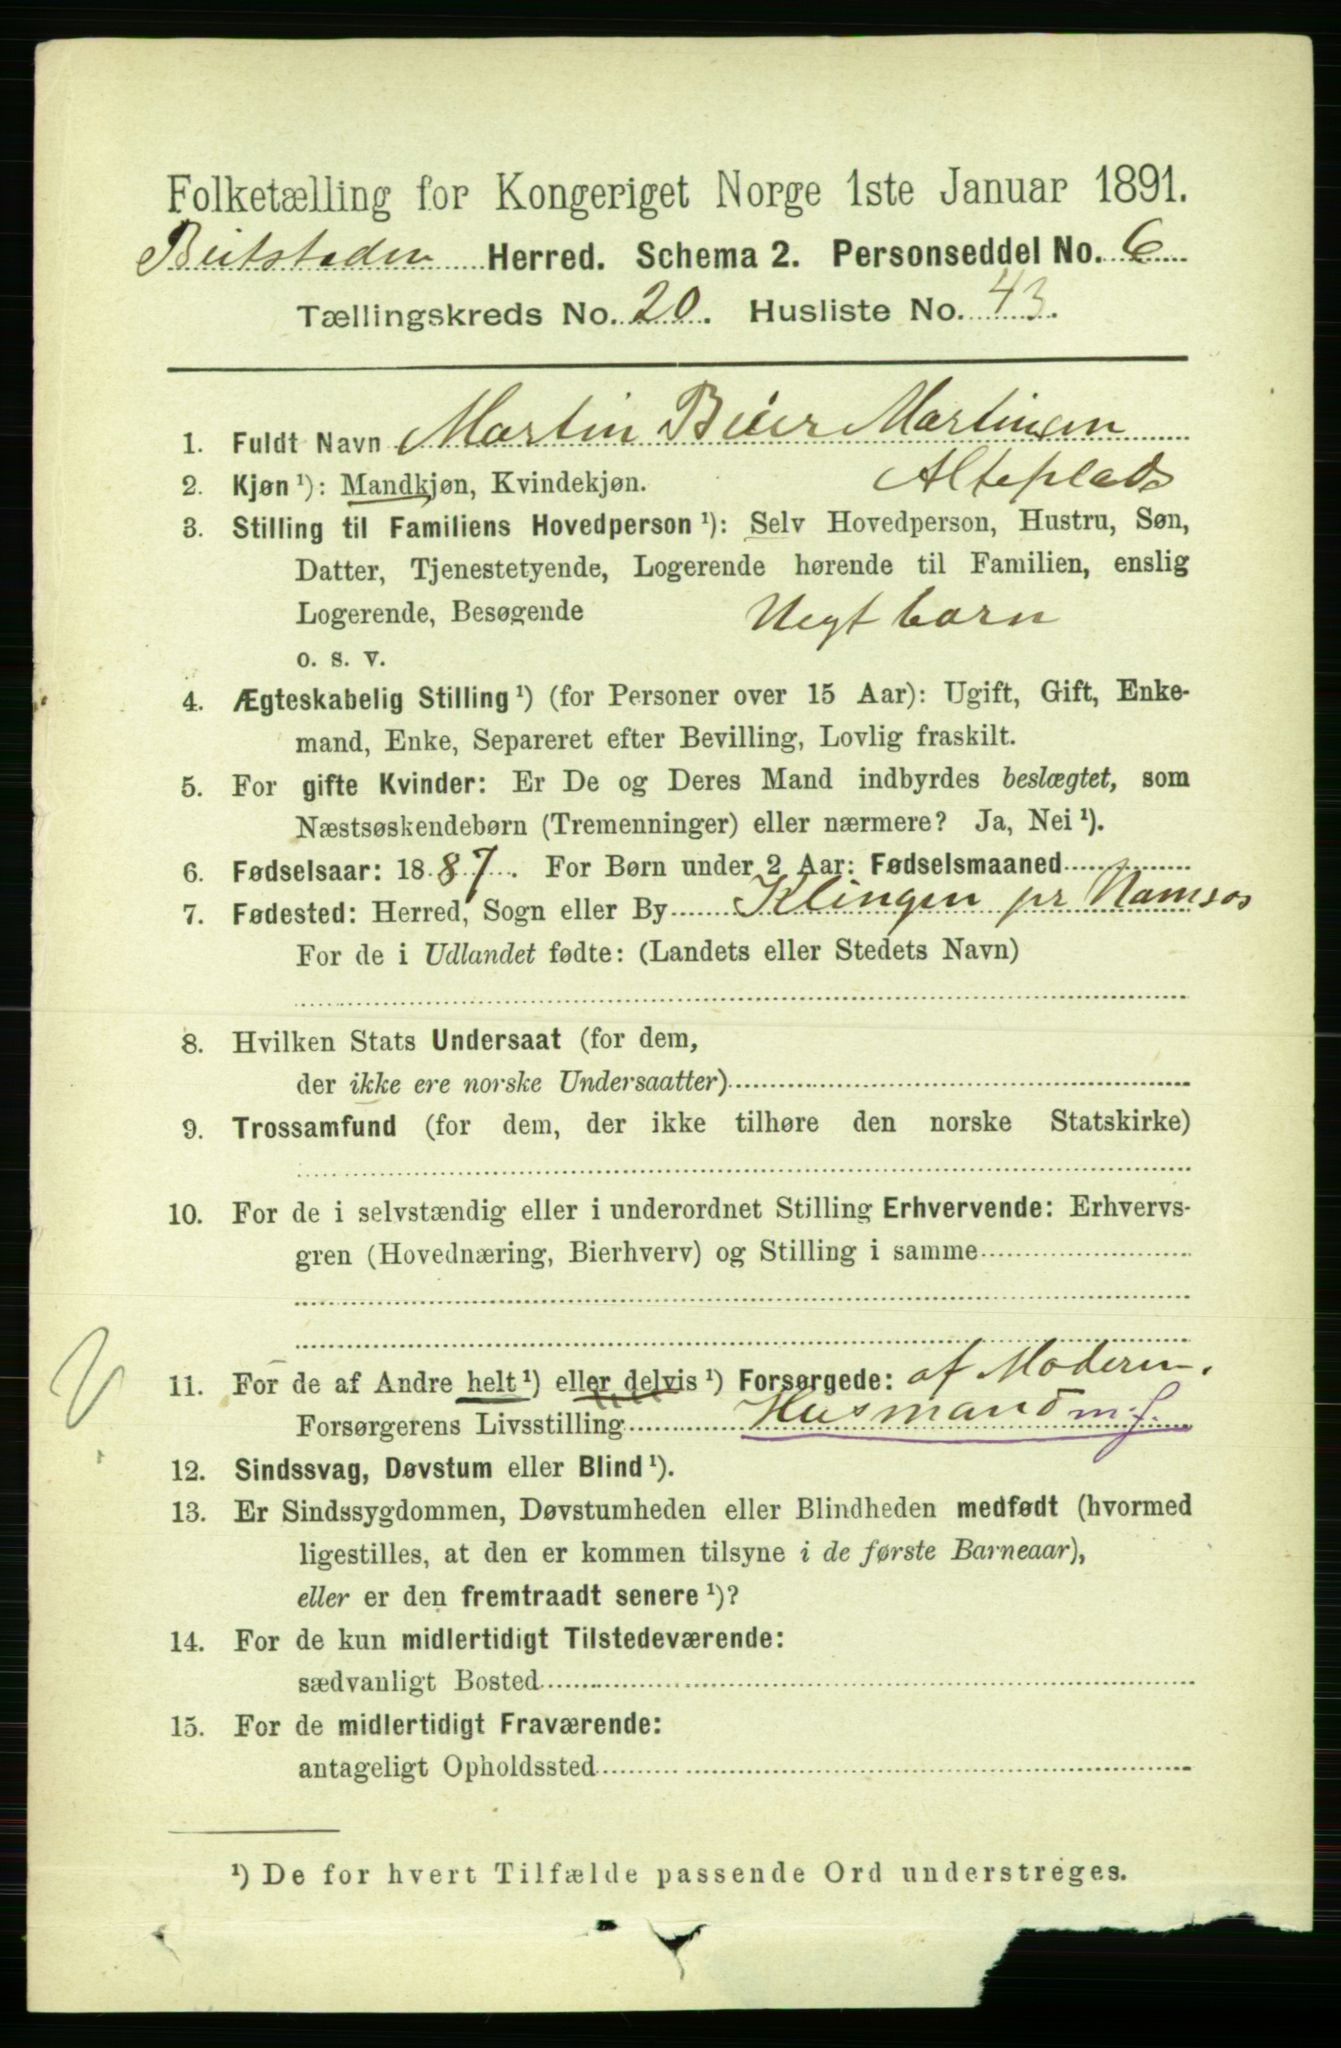 Folketælling for Kongeriget Norge 1ste Januar 1891.
Beitstaden Herred. Schema 2. Personseddel No. 6
Tællingskreds No. 20. Husliste No. 43.
1. Fuldt Navn Martin Martinsen
2. Kjøn ¹): Mandkjøn, Kvindekjøn. Alteplads
3. Stilling til Familiens Hovedperson ¹): Selv Hovedperson, Hustru, Søn,
Datter, Tjenestetyende, Logerende hørende til Familien, enslig
Logerende, Besøgende Uegt barn
o. s. v.
4. Ægteskabelig Stilling ¹) (for Personer over 15 Aar): Ugift, Gift, Enke-
mand, Enke, Separeret efter Bevilling, Lovlig fraskilt.
5. For gifte Kvinder: Er De og Deres Mand indbyrdes beslægtet, som
Næstsøskendebørn (Tremenninger) eller nærmere? Ja, Nei ¹).
6. Fødselsaar: 1887. For Børn under 2 Aar: Fødselsmaaned
7. Fødested: Herred, Sogn eller By Klingen pr Namsos
For de i Udlandet fødte: (Landets eller Stedets Navn)
8. Hvilken Stats Undersaat (for dem,
der ikke ere norske Undersaatter)
9. Trossamfund (for dem, der ikke tilhøre den norske Statskirke)
10. For de i selvstændig eller i underordnet Stilling Erhvervende: Erhvervs-
gren (Hovednæring, Bierhverv) og Stilling i samme
11. For de af Andre helt ¹) eller delvis ¹) Forsørgede: af Moderen.
Forsørgerens Livsstilling Husmand m. f.
12. Sindssvag, Døvstum eller Blind ¹).
13. Er Sindssygdommen, Døvstumheden eller Blindheden medfødt (hvormed
ligestilles, at den er kommen tilsyne i de første Barneaar),
eller er den fremtraadt senere ¹)?
14. For de kun midlertidigt Tilstedeværende:
sædvanligt Bosted
15. For de midlertidigt Fraværende:
antageligt Opholdssted
¹) De for hvert Tilfælde passende Ord understreges.